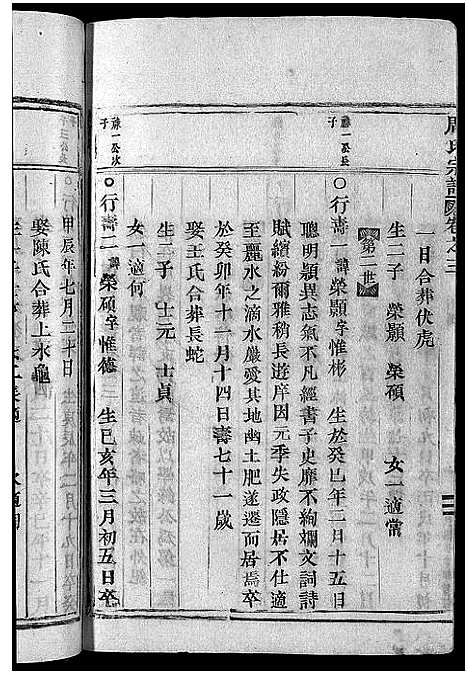 周氏宗譜卷之三
一日合葬伏虎
生二子 榮顯 榮碩 女一適常
第二世
蘇一公長子
○行壽一諱榮顥字惟彬 生於癸巳年二月十五日
聰明穎異志氣不凡經書子史靡不絢斕文詞詩
賦繽紛爾雅稍長遊庠因元季失政隱居不仕適
至麗水之滴水嚴愛其地幽土肥遂遷而居焉卒
於癸卯年十一月十四日壽七十一歲
娶王氏合葬長蛇
生二子 士元 士貞
女一適何
蘇一公次子
○行壽二諱榮碩字惟德 生巳亥年三月初五日卒
甲辰年七月二十日
娶陳氏合葬上水龜